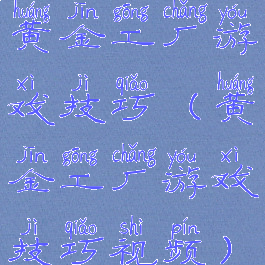 huáng jīn gōng chǎng yóu
黄金工厂游
xì jì qiǎo huáng
戏技巧（黄
jīn gōng chǎng yóu xì
金工厂游戏
jì qiǎo shì pín
技巧视频）